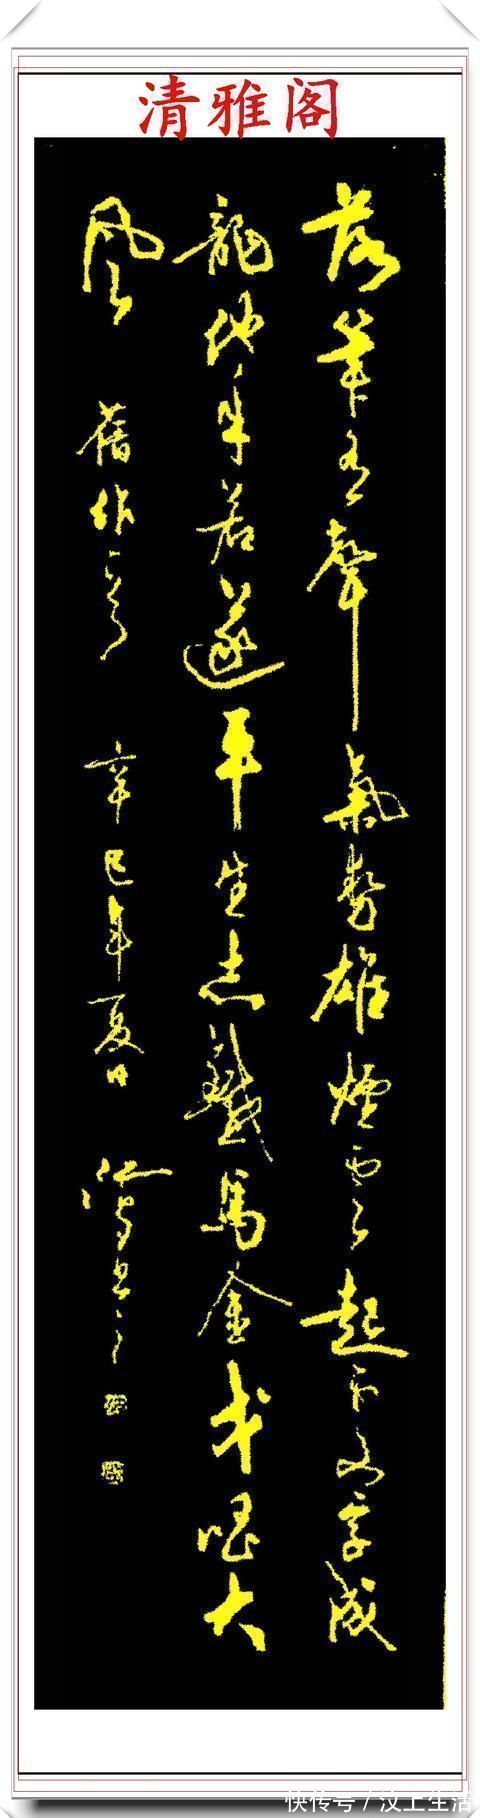 清雅阁
落筆有聲氣勢雄煙雲起字成
龍他年若遂平生志鐵馬金戈唱大
風 舊作一首 辛巳年夏日
快传号/汶上生活